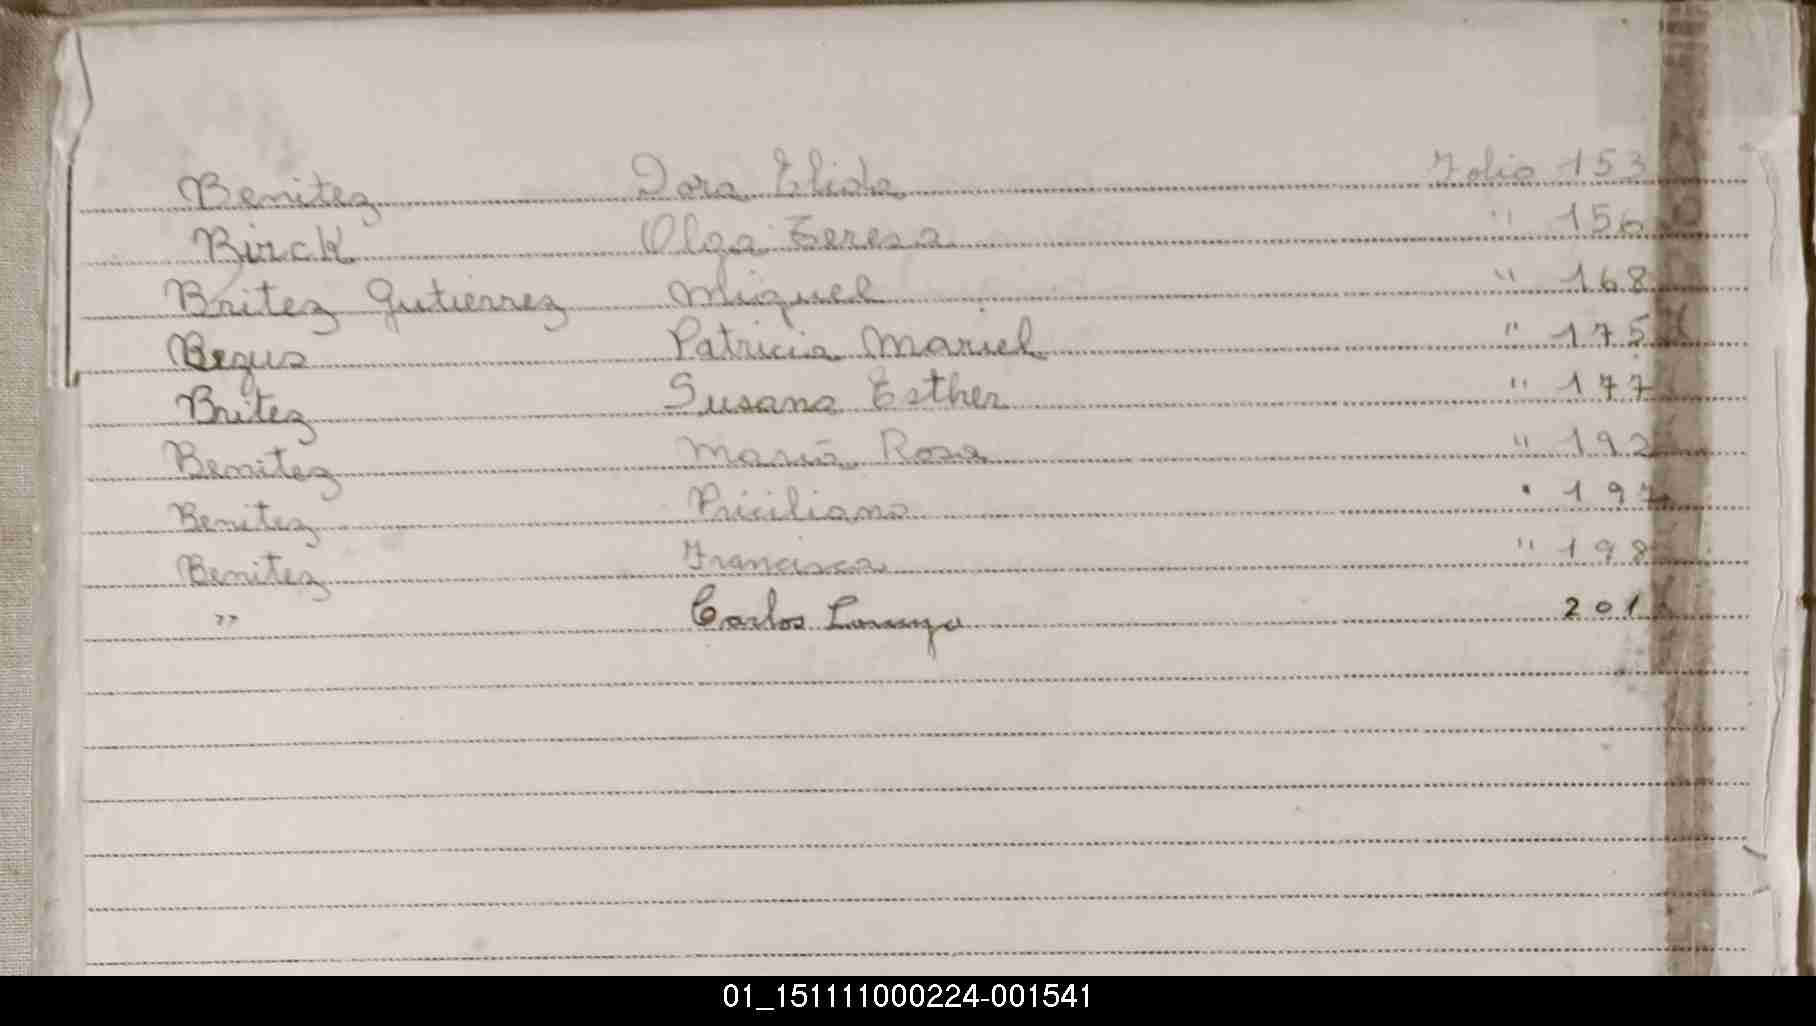 Benitez Dora Elida Folio 153
Birck Olga Teresa " 156
Britez Gutierrez Miguel " 168
Bezus Patricia Mariel " 175
Britez Susana Esther " 177
Benitez Maria Rosa " 192
Benitez Priciliano " 197
Benitez Francisca " 198
" Carlos Lorenzo 201
01_151111000224-001541